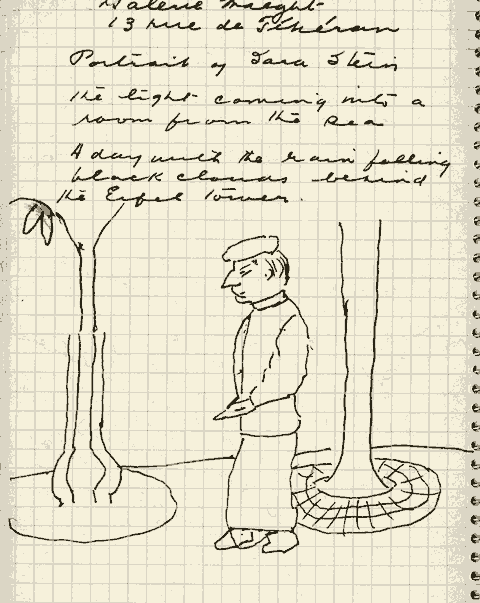 Galerie Maeght
13 rue de Téhéran
Portrait of Sara Stein
the light coming into a
room from the sea
A day with the rain falling
black clouds behind
the Eifel Tower.